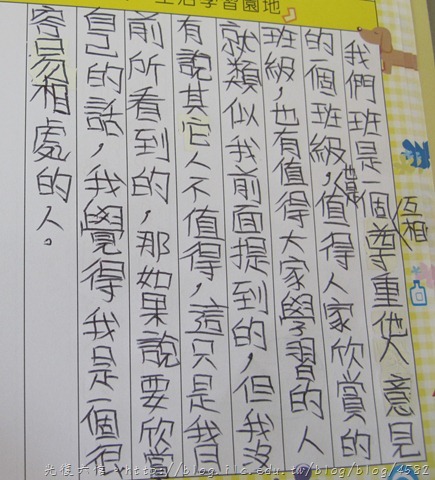 生活學習園地
我們班是一個互相尊重他人意見
的一個班級,也是值得人家欣賞的
班級,也有值得大家學習的人
就類似我前面提到的,但我沒
有說其它人不值得,這只是我目
前所看到的,那如果說要欣賞
自己的話,我覺得我是一個很
容易相處的人。
http://blog.ilc.edu.tw/blog/blog/4582